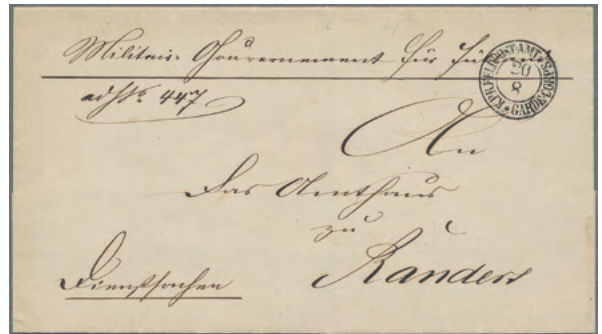 Militair-Gouvernement für
K.PR.FELDPOST-AMT
GARDE-CORPS
20
8
447
An
das Amthaus
zu
Randers
Dienstsachen